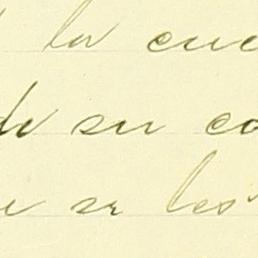 la cue
de su co
se les